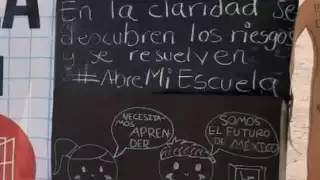 A
En la claridad se
descubren los riesgos
y se resuelven
#AbreMiEscuela
NECESITA-
MOS APREN
DER
SOMOS
EL FUTURO
DE MÉXICO